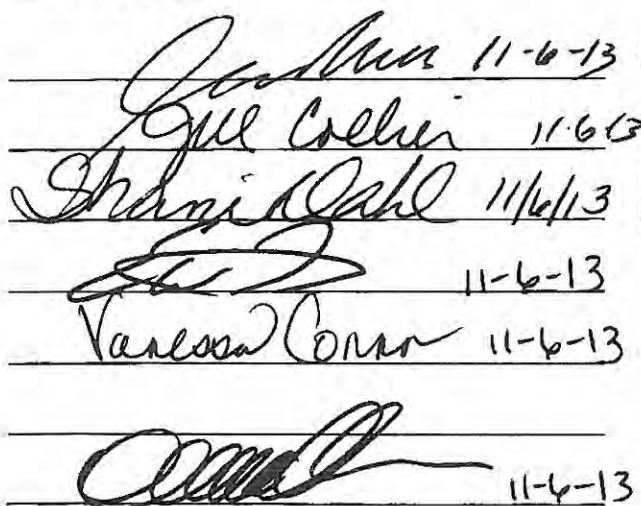 11-6-13
Jill Collier 11-6-13
Shani Dahl 11/6/13
11-6-13
Vanessa Connor 11-6-13
11-6-13